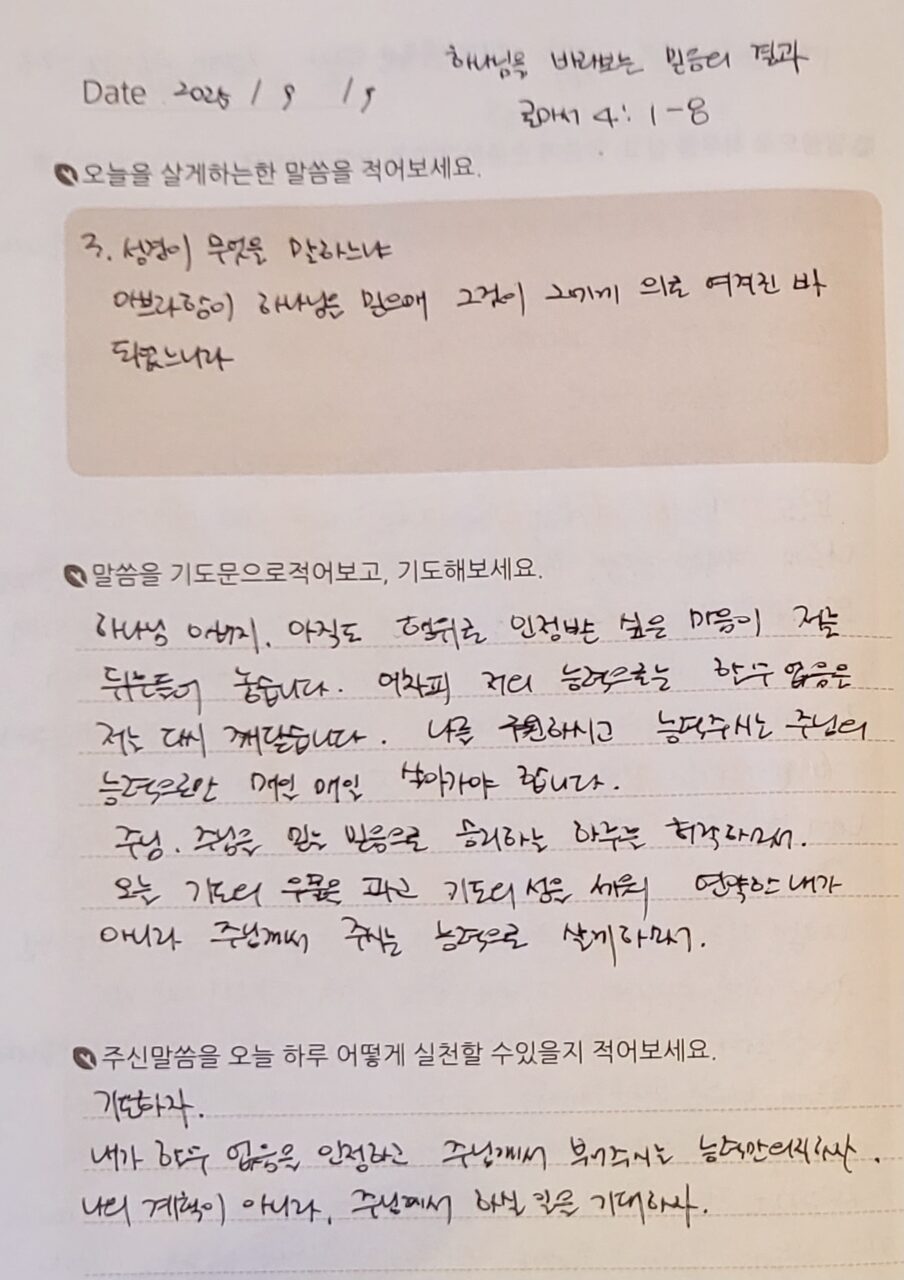 하나님을 바라보는 믿음의 결과
Date 2025 / 9 / 9
로마서 4: 1-8
오늘을 살게하는한 말씀을 적어보세요.
3. 성경이 무엇을 말하느냐
아브라함이 하나님을 믿으매 그것이 그에게 의로 여겨진 바
되었느니라
말씀을 기도문으로적어보고, 기도해보세요.
하나님 아버지, 아직도 행위로 인정받고 싶은 마음이 저를
뒤흔들어 놓습니다. 어차피 저의 능력으로는 할수 없음을
저는 다시 깨닫습니다. 나를 구원하시고 능력주시는 주님의
능력으로만 매일 매일 살아가야 합니다.
주님. 주님을 믿는 믿음으로 승리하는 하루를 허락하여서.
오늘 기도의 우물을 파고 기도의 성을 세워 연약한 내가
아니라 주님께서 주시는 능력으로 살게하여서.
주신말씀을 오늘 하루 어떻게 실천할 수있을지 적어보세요.
기도하자.
내가 할수 없음을 인정하고 주님께서 부어주시는 능력만의지하자.
나의 계획이 아니라, 주님께서 하실 일을 기대하자.